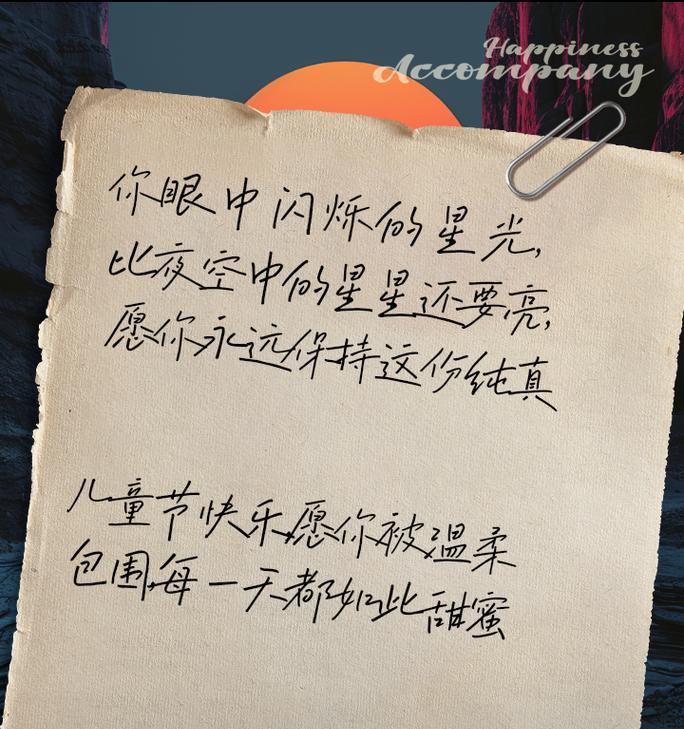 Happiness
Accompany
你眼中闪烁的星光,
比夜空中的星星还要亮,
愿你永远保持这份纯真
儿童节快乐,愿你被温柔
包围,每一天都如此甜蜜